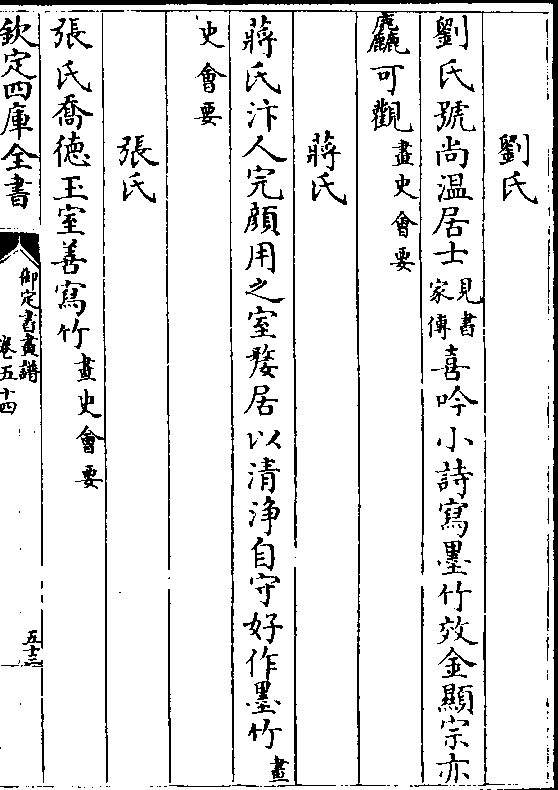 劉氏
劉氏號尚温居士見書家傳喜吟小詩寫墨竹效金顯宗亦
麤可觀畫史會要
蔣氏
蔣氏汴人完顔用之室嫠居以清淨自守好作墨竹畫
史會要
張氏
張氏喬徳玉室善寫竹畫史會要
欽定四庫全書
御定書畫譜
卷五十四
五十三